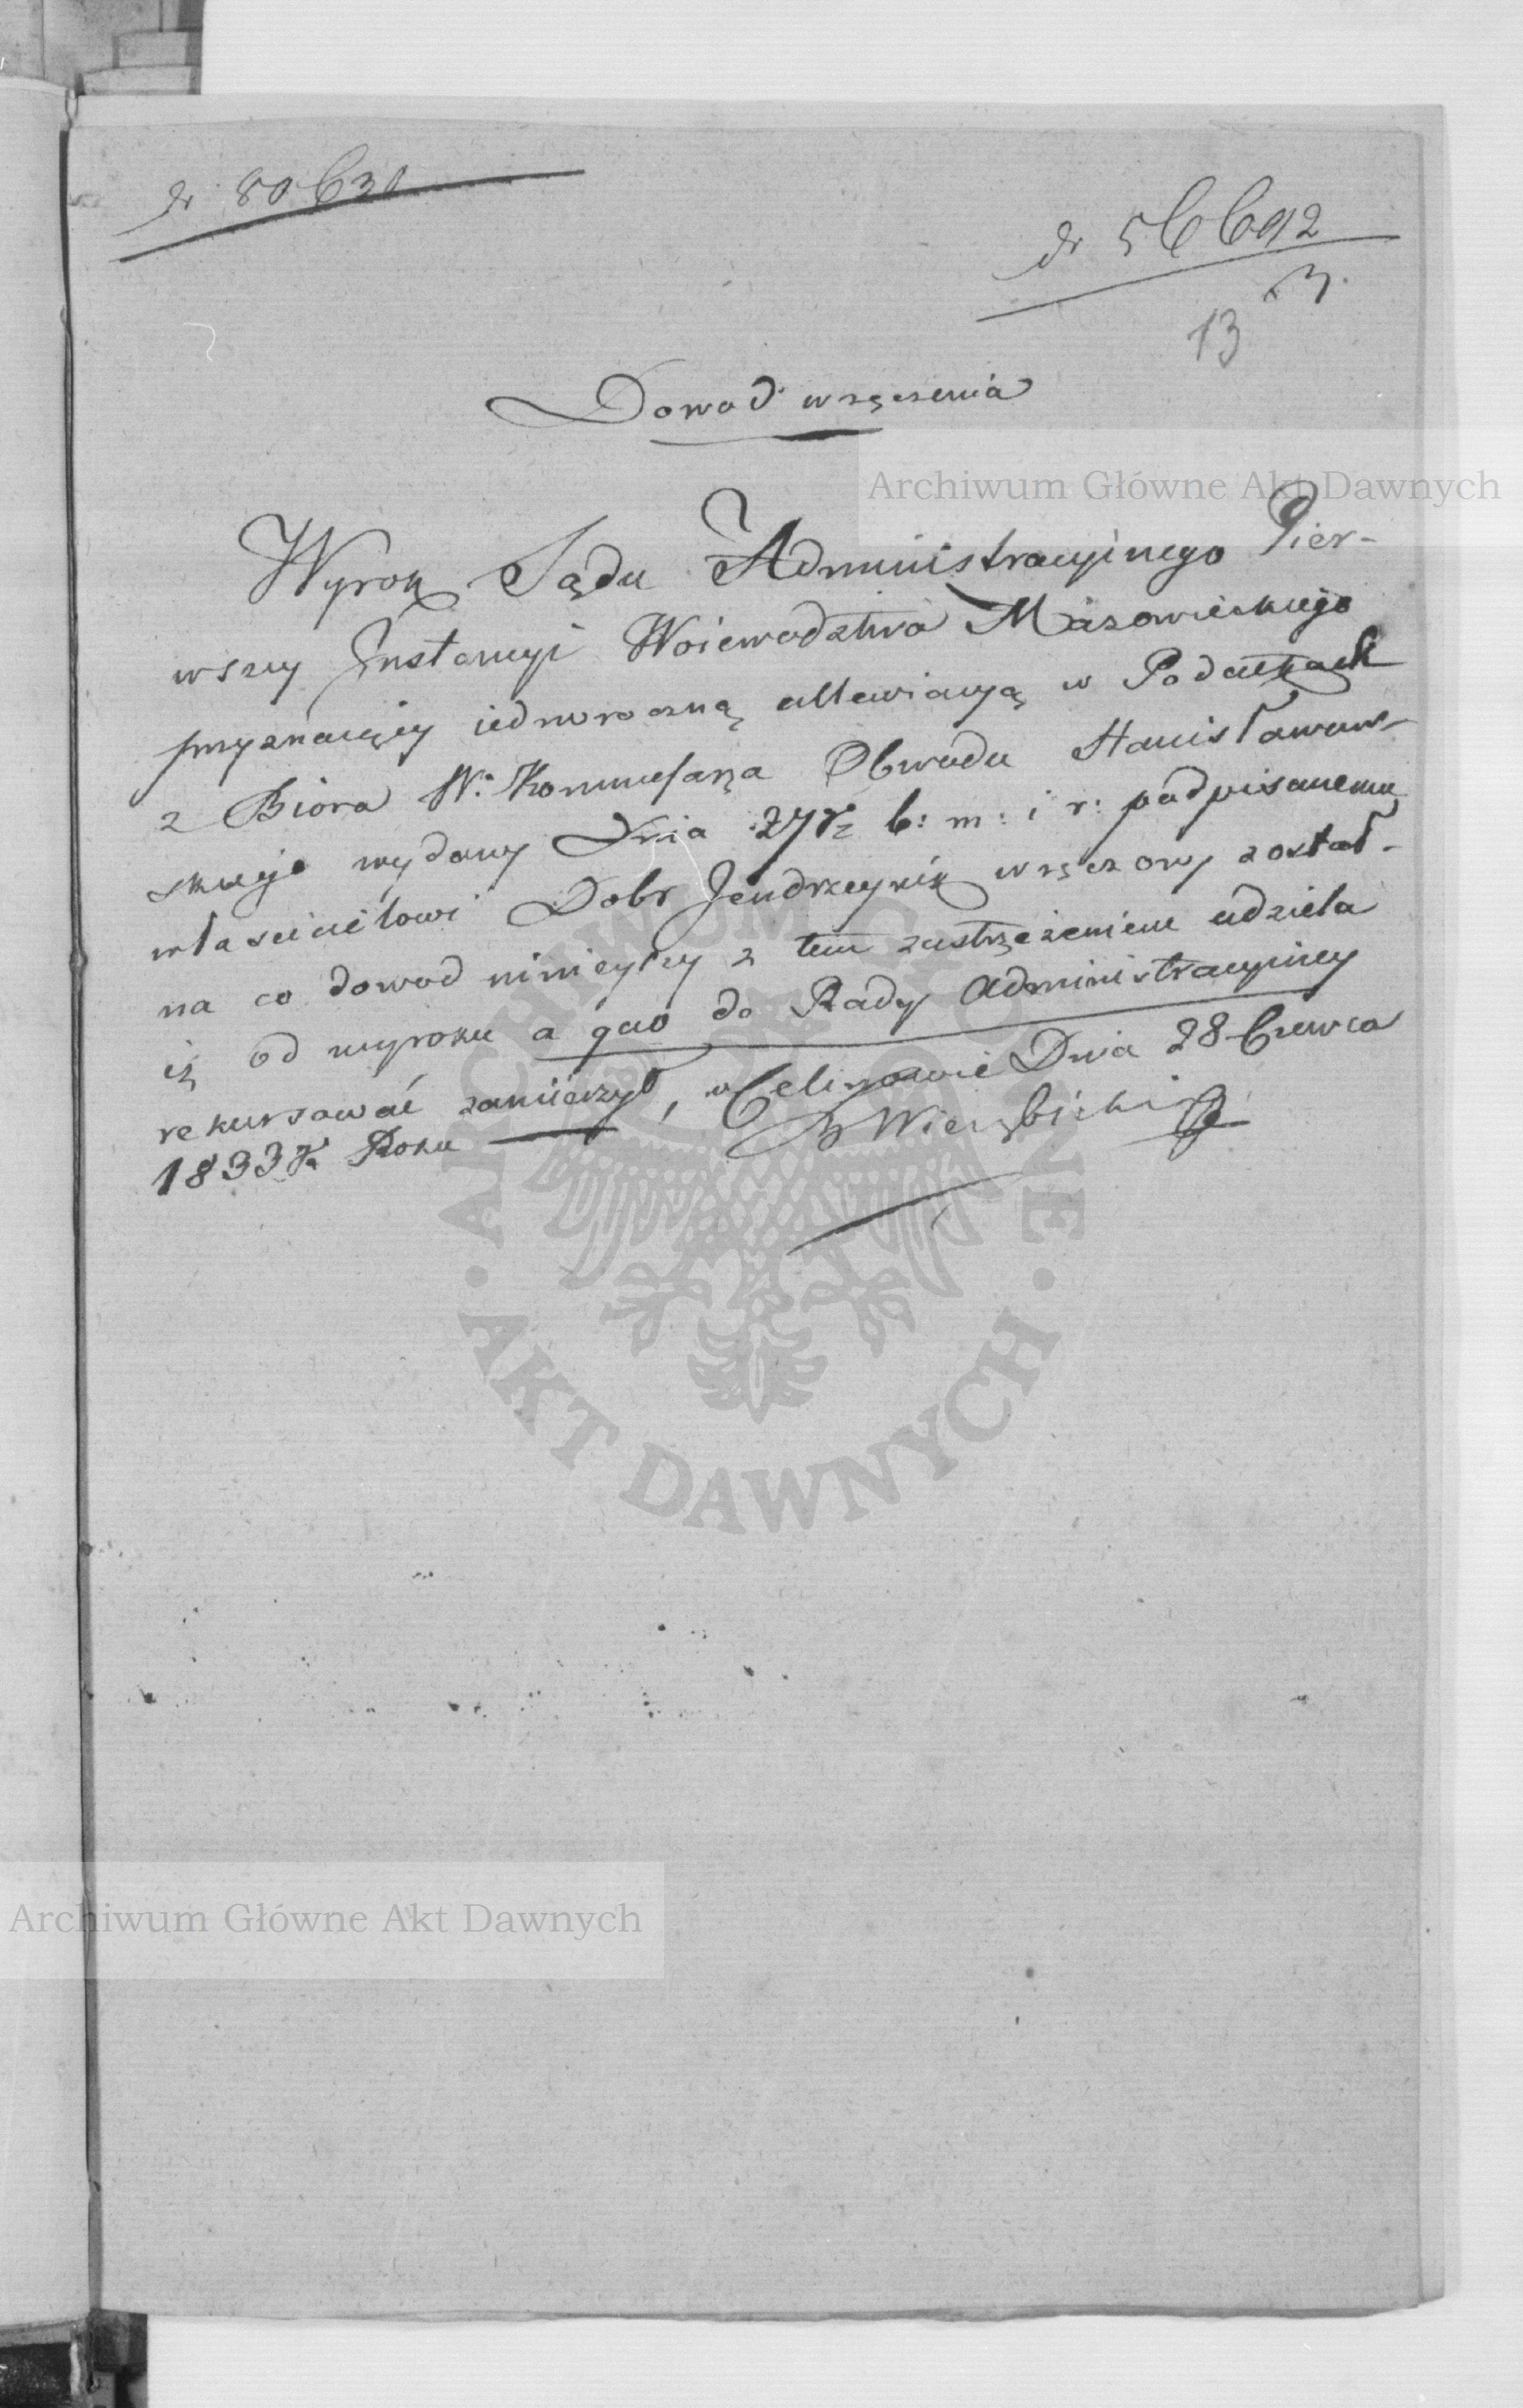 Nr 80630
Nr 56692
3.
13
Dowod wręczenia
Archiwum Główne Akt Dawnych
Wyrok Sądu Administracyinego Pier-
wszey Instancyi Woiewodztwa Mazowieckiego
przyznaiący iednoroczną allewiacyą w Podatkach
z Biora W: Kommissarza Obwodu Stanisławow-
skiego wydany Dnia 27 b: m: i r: podpisanemu
właścicielowi Dobr Jendrzeynik wręczony został -
na co dowod ninieyszy z tem zastrzeżeniem udziela
iż od wyroku a quo do Rady Administracyiney
rekursować zamierzył, w Celinowie Dnia 28 Czerwca
1833 Roku
Wierzbicki
ARCHIWUM GŁÓWNE
AKT DAWNYCH
Archiwum Główne Akt Dawnych